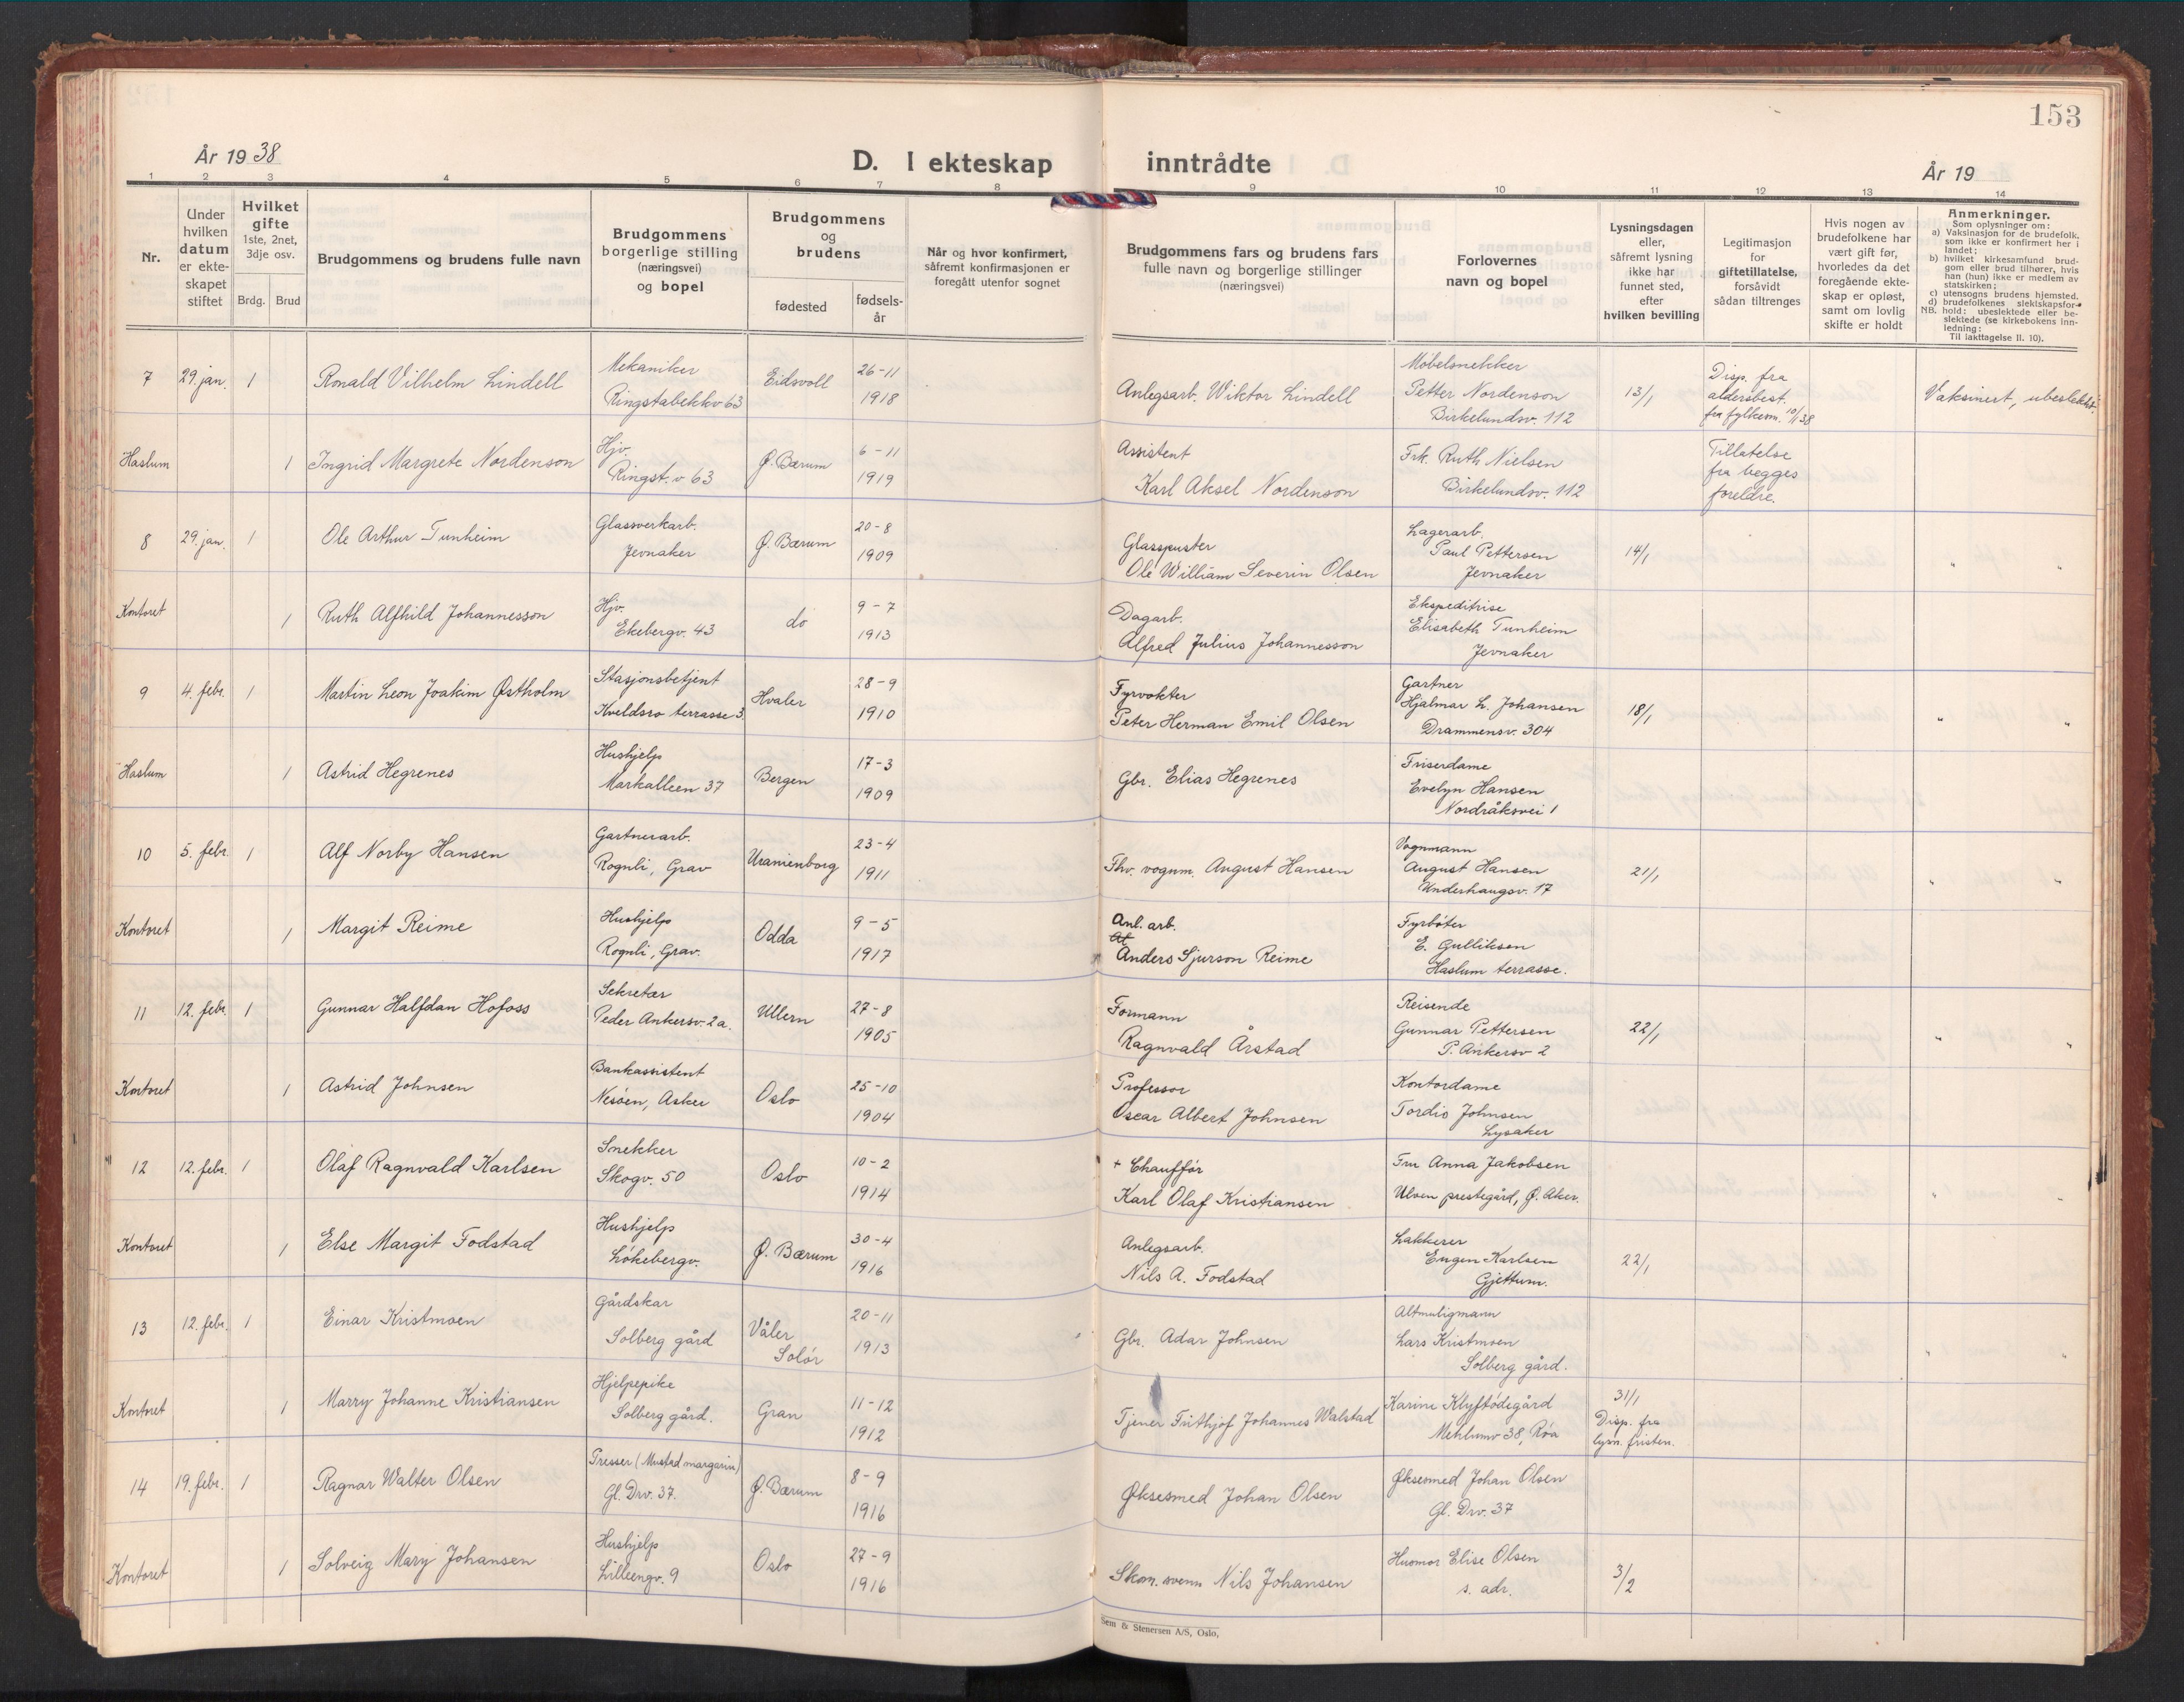 153
År 1938
D. I ekteskap inntrådte
År 19
1 2 3 4 5 6 7 8 9 10 11 12 13 14
Nr.
Under hvilken datum er ekteskapet stiftet
Hvilket gifte 1ste, 2net, 3dje osv.
Brdg. Brud
Brudgommens og brudens fulle navn
Brudgommens borgerlige stilling (næringsvei) og bopel
Brudgommens og brudens
fødested
fødselsår
Når og hvor konfirmert, såfremt konfirmasjonen er foregått utenfor sognet
Brudgommens fars og brudens fars fulle navn og borgerlige stillinger (næringsvei)
Forlovernes navn og bopel
Lysningsdagen eller, såfremt lysning ikke har funnet sted, efter hvilken bevilling
Legitimasjon for giftetillatelse, forsåvidt sådan tiltrenges
Hvis nogen av brudefolkene har vært gift før, hvorledes da det foregående ekteskap er opløst, samt om lovlig skifte er holdt
Anmerkninger.
Som oplysninger om:
a) Vaksinasjon for de brudefolk, som ikke er konfirmert her i landet;
b) hvilket kirkesamfund brudgom eller brud tilhører, hvis han (hun) ikke er medlem av statskirken;
c) utensogns brudens hjemsted.
d) brudefolkenes slektskapsforhold: ubeslektede eller beslektede (se kirkebokens innledning:
NB.
Til iakttagelse II. 10).
7 29. jan. 1 Ronald Vilhelm Lindell Mekaniker Ringstabekkv 63 Eidsvoll 26-11 1918 Anlegsarb. Wiktor Lindell Møbelsnekker Petter Nordenson Birkelundsv. 112 13/1 Disp. fra aldersbest. fra fylkesm. 10/1 38 Vaksinert, ubeslektet.
Haslum 1 Ingrid Margrete Nordenson Hjv. Ringst. v 63 Ø. Bærum 6-11 1919 Assistent Karl Aksel Nordenson Frk. Ruth Nielsen Birkelundsv. 112 Tillatelse fra begges foreldre.
8 29. jan. 1 Ole Arthur Tunheim Glassverkarb. Jevnaker Ø. Bærum 20-8 1909 Glasspuster Ole William Severin Olsen Lagerarb. Paul Pettersen Jevnaker 14/1 " "
Kontoret 1 Ruth Alfhild Johannesson Hjv. Ekebergv. 43 do 9-7 1913 Dagarb. Alfred Julius Johannesson Ekspeditrise Elisabeth Tunheim Jevnaker
9 4. febr. 1 Martin Leon Joakim Østholm Stasjonsbetjent Kveldsro terrasse 3. Hvaler 28-9 1910 Fyrvokter Peter Herman Emil Olsen Gartner Hjalmar L. Johansen Drammensv. 304 18/1 " "
Haslum 1 Astrid Hegrenes Hushjelp Markalleen 37 Bergen 17-3 1909 Gbr. Elias Hegrenes Friserdame Evelyn Hansen Nordråksvei 1
10 5. febr. 1 Alf Norby Hansen Gartnerarb. Rognli, Grav Uranienborg 23-4 1911 Fhv. vognm. August Hansen Vognmann August Hansen Underhaugsv. 17 21/1 " "
Kontoret 1 Margit Reime Hushjelp Rognli, Grav. Odda 9-5 1917 Anl. arb. Anders Sjurson Reime Fyrbøter E. Gulliksen Haslum terrasse.
11 12. febr. 1 Gunnar Halfdan Hofoss Sekretær Peder Ankersv. 2a. Ullern 27-8 1905 Formann Ragnvald Årstad Reisende Gunnar Pettersen P. Ankersv 2 22/1 " "
Kontoret 1 Astrid Johnsen Bankassistent Nesøen, Asker Oslo 25-10 1904 Professor Oscar Albert Johnsen Kontordame Tordis Johnsen Lysaker
12 12. febr. 1 Olaf Ragnvald Karlsen Snekker Skogv. 50 Oslo 10-2 1914 + Chauffør Karl Olaf Kristiansen Fru Anna Jakobsen Ulven prestegård, Ø. Aker. " "
Kontoret 1 Else Margit Fodstad Hushjelp Løkebergv. Ø. Bærum 30-4 1916 Anlegsarb. Nils A. Fodstad Lakkerer Eugen Karlsen Gjettum. 22/1
13 12. febr. 1 Einar Kristmoen Gårdskar Solberg gård Våler Solør 20-11 1913 Gbr. Adar Johnsen Altmuligmann Lars Kristmoen Solberg gård. " "
Kontoret 1 Marry Johanne Kristiansen Hjelpepike Solberg gård. Gran 11-12 1912 Tjener Frithjof Johannes Walstad Karine Klyftødegård Mehlumv 38, Røa 31/1 Disp. fra lysn. fristen.
14 19. febr. 1 Ragnar Walter Olsen Presser (Mustad margarin) Gl. Drv. 37. Ø. Bærum 8-9 1916 Øksesmed Johan Olsen Øksesmed Johan Olsen Gl. Drv. 37
Kontoret 1 Solveig Mary Johansen Hushjelp Lilleengv. 9 Oslo 27-9 1916 Skom. svenn Nils Johansen Husmor Elise Olsen s. adr. 3/2
Sem & Stenersen A/S, Oslo,